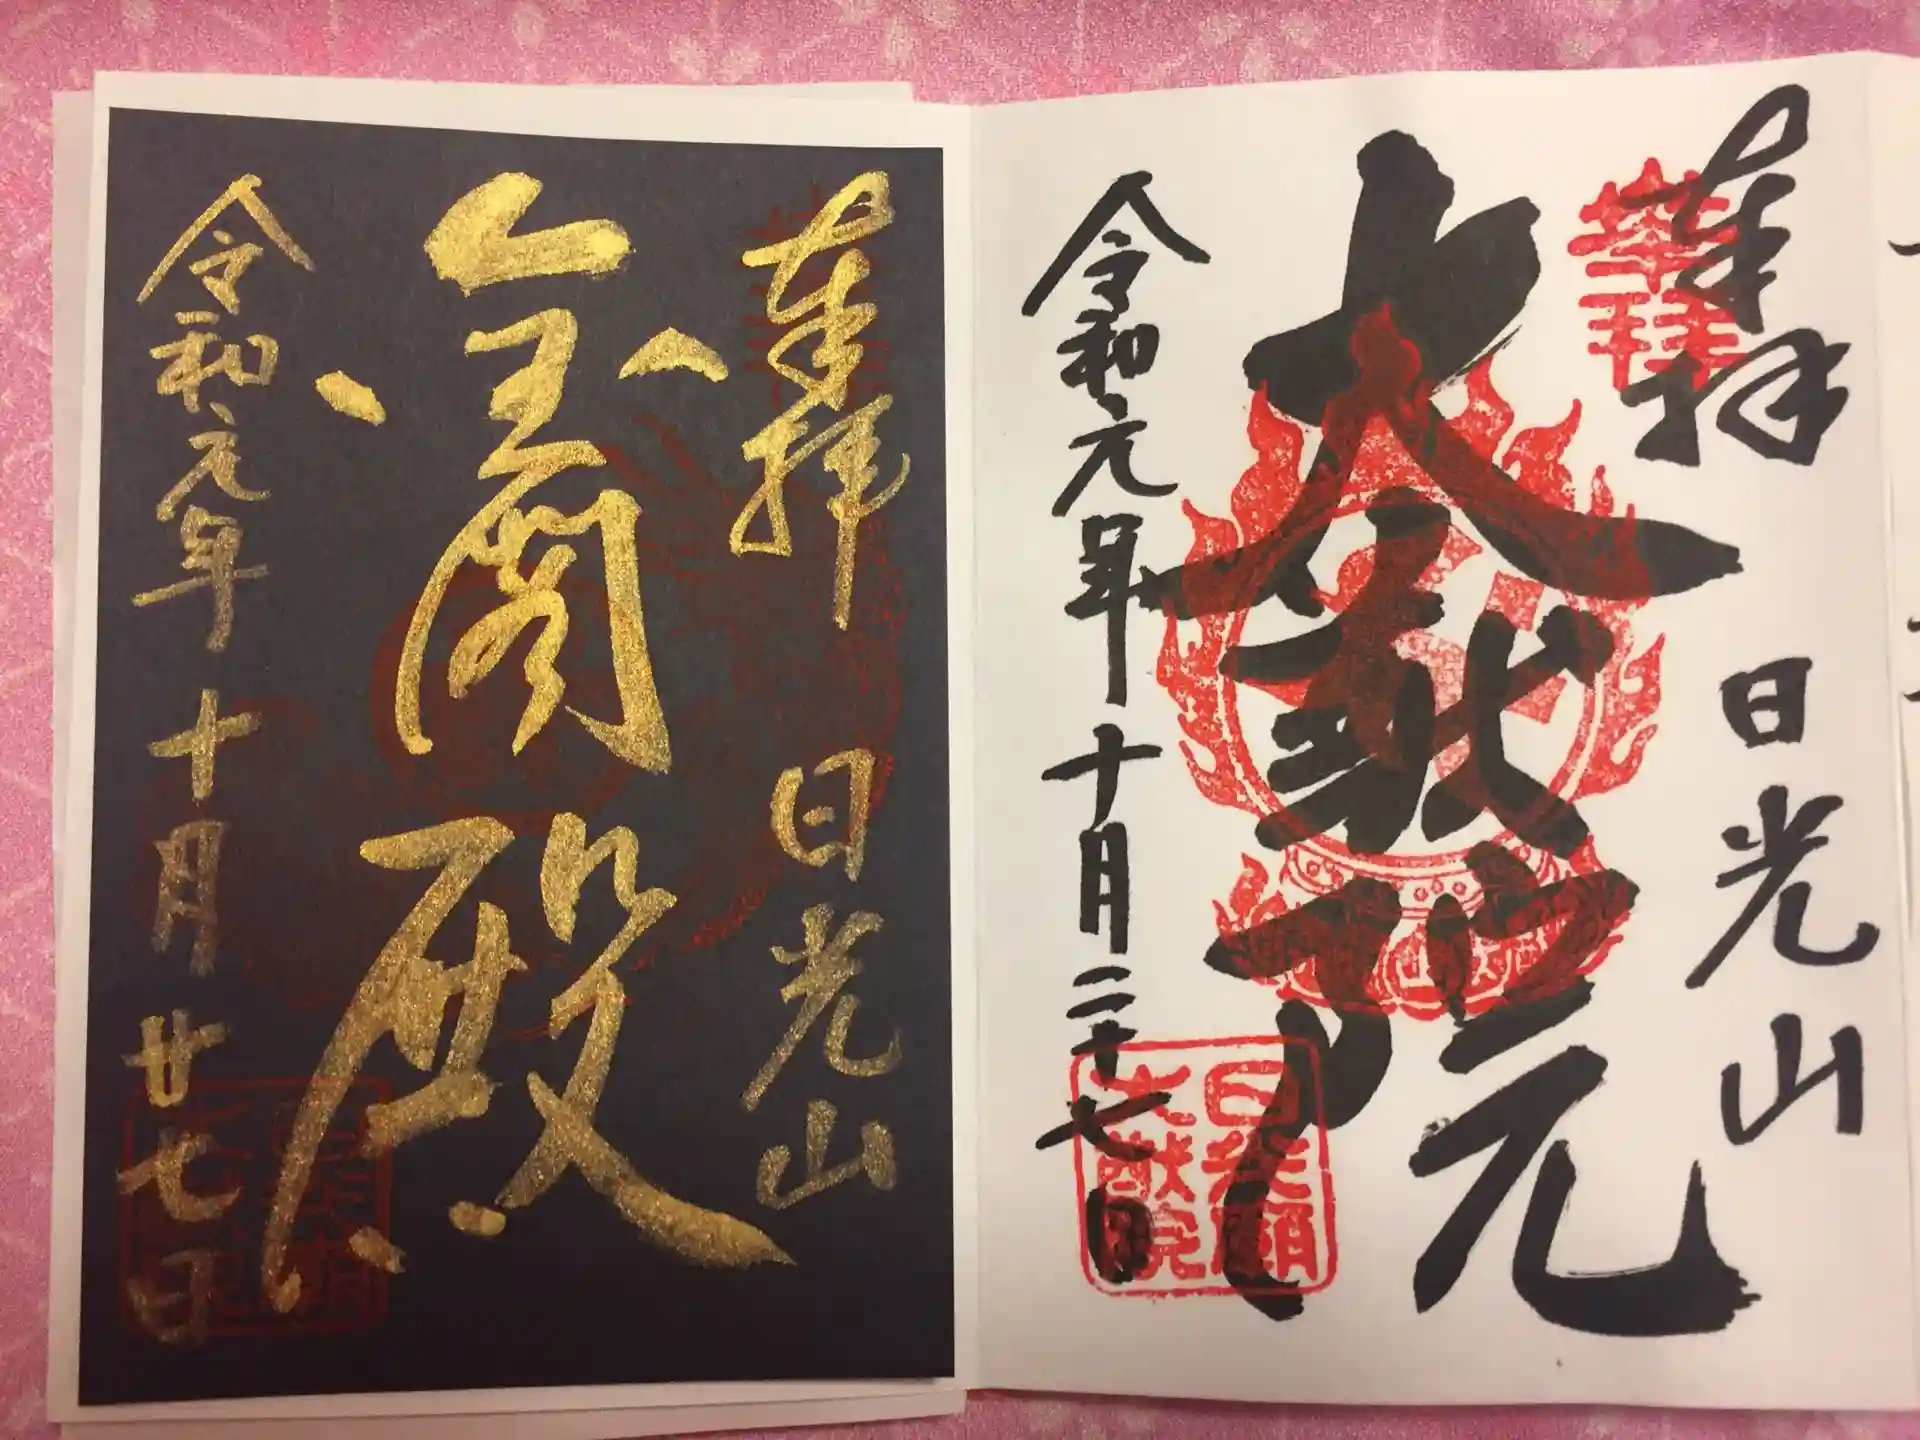 奉拝 日光山
大猷院
令和元年十月二十七日
奉拝
日光廟
大猷院
奉拝 日光山
金閣殿
令和元年十月廿七日